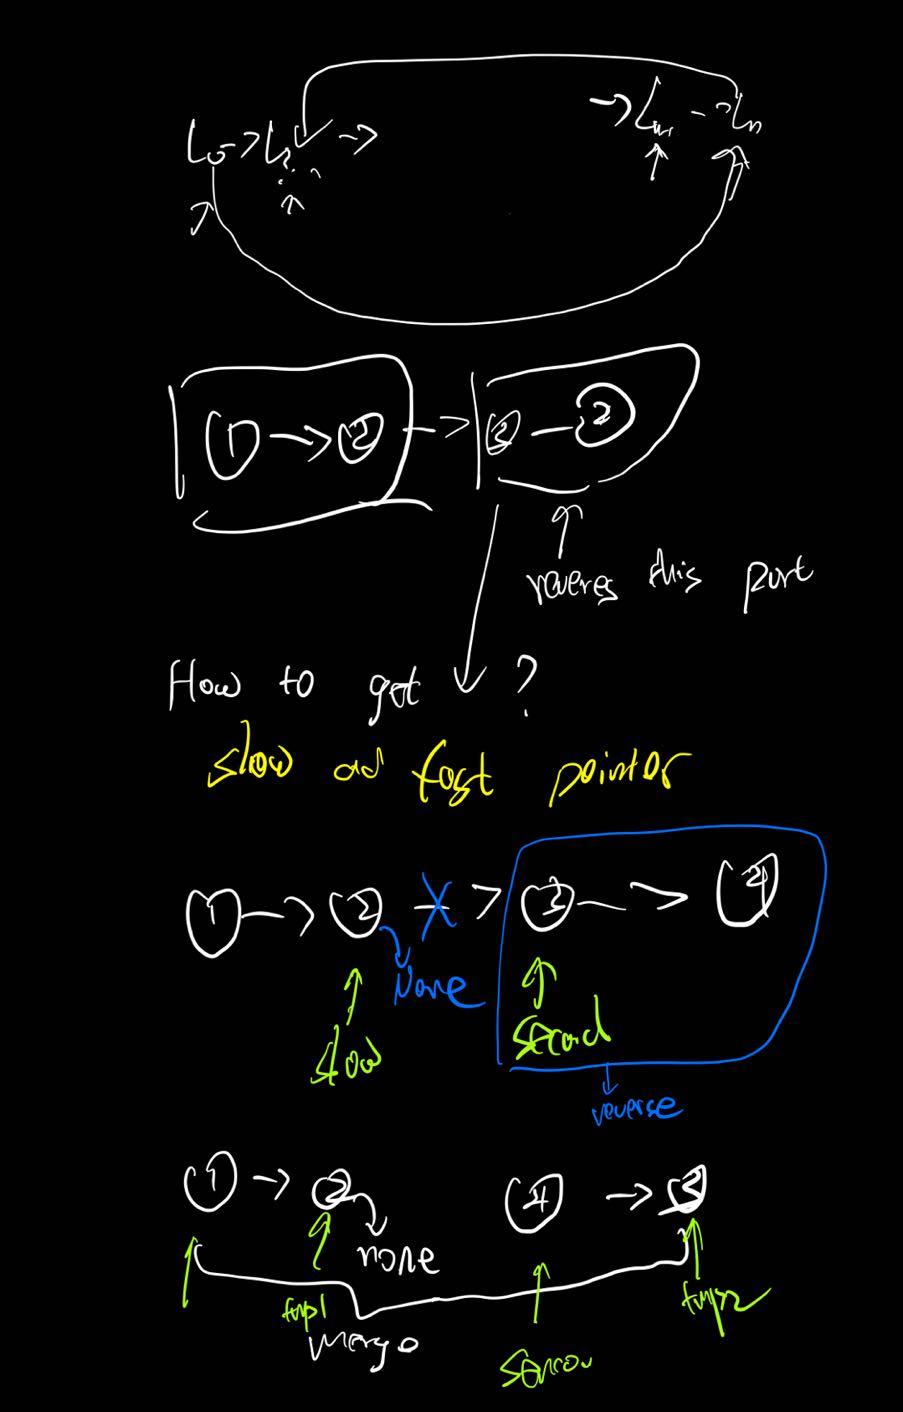 L0 -> L1 -> -> Ln-1 -> Ln
1 -> 2 -> 3 - 2
reveres this part
How to get ?
slow ad fast pointer
1 -> 2 > 3 -> 4
None
slow second
reverse
1 -> 2 4 -> 3
none
tmp1 tmp2
merge